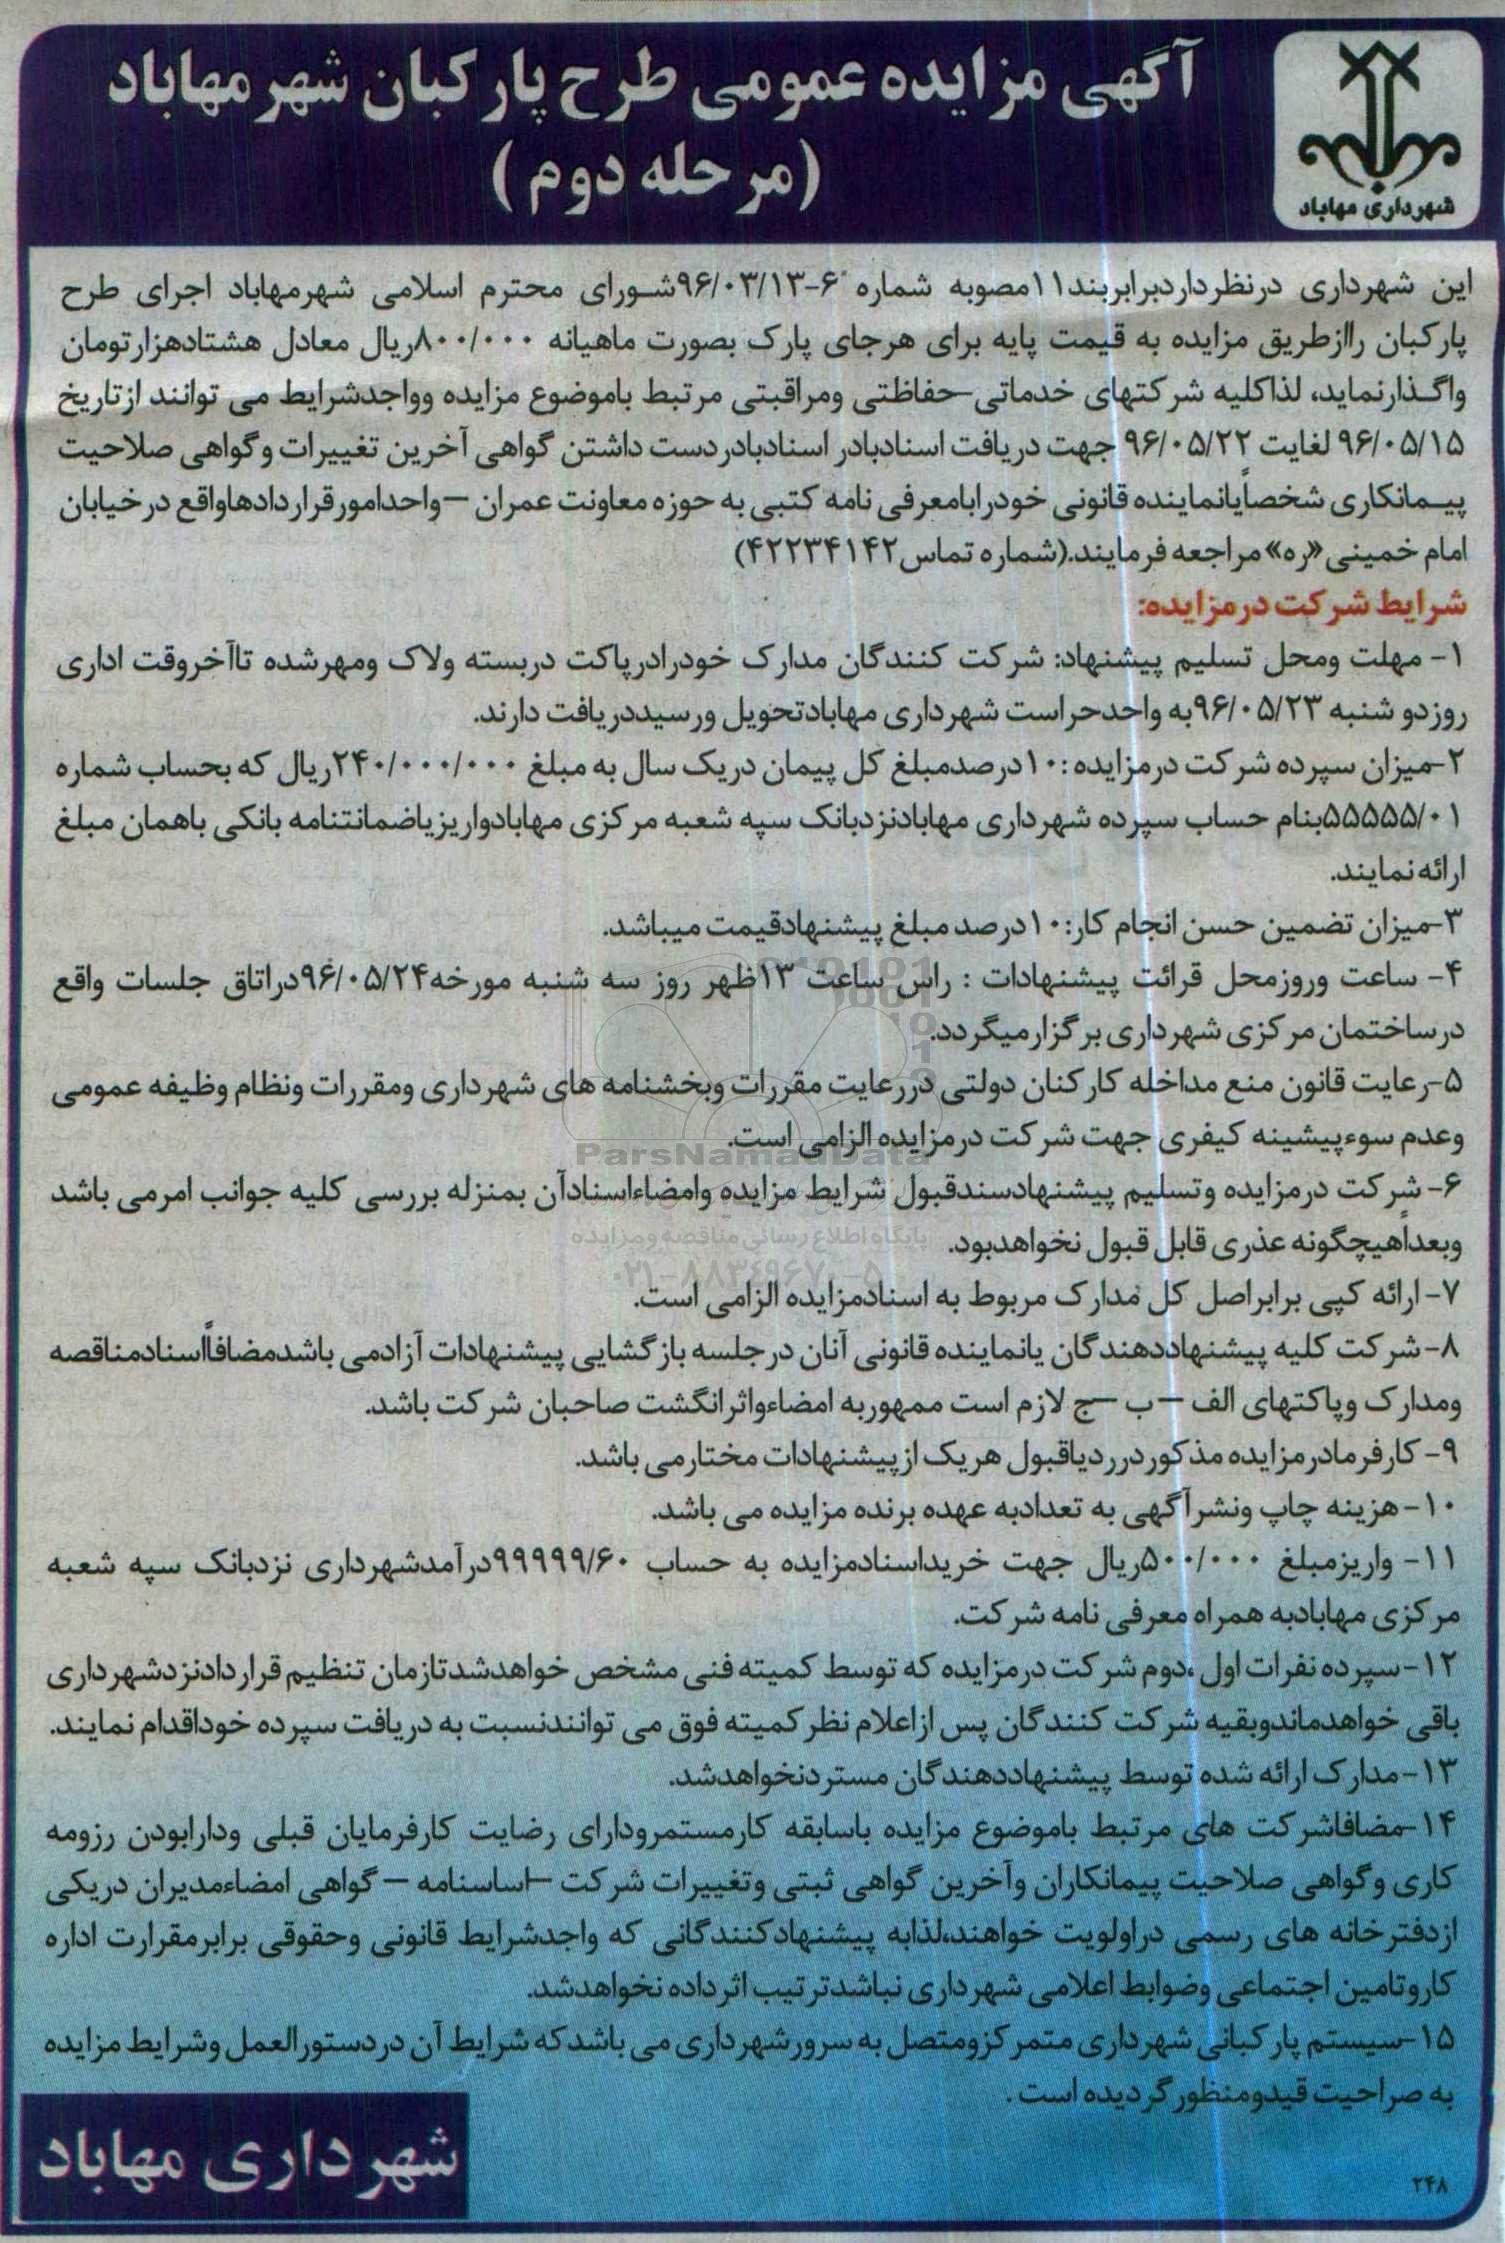 آگهی مزایده عمومی طرح پارکبان شهر مهاباد
(مرحله دوم)
شهرداری مهاباد
این شهرداری درنظرداردبرابربند۱۱مصوبه شماره ۶-۹۶/۰۳/۱۳شورای محترم اسلامی شهرمهاباد اجرای طرح
پارکبان راازطریق مزایده به قیمت پایه برای هرجای پارک بصورت ماهیانه ۸۰۰/۰۰۰ریال معادل هشتادهزارتومان
واگذارنماید، لذاکلیه شرکتهای خدماتی-حفاظتی ومراقبتی مرتبط باموضوع مزایده وواجدشرایط می توانند ازتاریخ
۹۶/۰۵/۱۵ لغایت ۹۶/۰۵/۲۲ جهت دریافت اسنادبادر اسنادبادردست داشتن گواهی آخرین تغییرات وگواهی صلاحیت
پیمانکاری شخصاًیانماینده قانونی خودرابامعرفی نامه کتبی به حوزه معاونت عمران –واحدامورقراردادهاواقع درخیابان
امام خمینی«ره» مراجعه فرمایند.(شماره تماس۴۲۲۳۴۱۴۲)
شرایط شرکت درمزایده:
۱- مهلت ومحل تسلیم پیشنهاد: شرکت کنندگان مدارک خودرادرپاکت دربسته ولاک ومهرشده تاآخروقت اداری
روزدو شنبه ۹۶/۰۵/۲۳به واحدحراست شهرداری مهابادتحویل ورسیددریافت دارند.
۲-میزان سپرده شرکت درمزایده :۱۰درصدمبلغ کل پیمان دریک سال به مبلغ ۲۴۰/۰۰۰/۰۰۰ریال که بحساب شماره
۵۵۵۵۵/۰۱بنام حساب سپرده شهرداری مهابادنزدبانک سپه شعبه مرکزی مهابادواریزیاضمانتنامه بانکی باهمان مبلغ
ارائه نمایند.
۳-میزان تضمین حسن انجام کار:۱۰درصد مبلغ پیشنهادقیمت میباشد.
۴- ساعت وروزمحل قرائت پیشنهادات : راس ساعت ۱۳ظهر روز سه شنبه مورخه۹۶/۰۵/۲۴دراتاق جلسات واقع
درساختمان مرکزی شهرداری برگزارمیگردد.
۵-رعایت قانون منع مداخله کارکنان دولتی دررعایت مقررات وبخشنامه های شهرداری ومقررات ونظام وظیفه عمومی
وعدم سوءپیشینه کیفری جهت شرکت درمزایده الزامی است.
ParsNamadData
۶- شرکت درمزایده وتسلیم پیشنهادسندقبول شرایط مزایده وامضاءاسنادآن بمنزله بررسی کلیه جوانب امرمی باشد
پایگاه اطلاع رسانی مناقصه و مزایده
وبعداًهیچگونه عذری قابل قبول نخواهدبود.
۰۲۱-۸۸۳۴۹۶۷۰-۵
۷- ارائه کپی برابراصل کل مدارک مربوط به اسنادمزایده الزامی است.
۸- شرکت کلیه پیشنهاددهندگان یانماینده قانونی آنان درجلسه بازگشایی پیشنهادات آزادمی باشدمضافاًاسنادمناقصه
ومدارک وپاکتهای الف –ب –ج لازم است ممهوربه امضاءواثرانگشت صاحبان شرکت باشد.
۹- کارفرمادرمزایده مذکوردرردیاقبول هریک ازپیشنهادات مختارمی باشد.
۱۰- هزینه چاپ ونشرآگهی به تعدادبه عهده برنده مزایده می باشد.
۱۱- واریزمبلغ ۵۰۰/۰۰۰ریال جهت خریداسنادمزایده به حساب ۹۹۹۹۹/۶۰درآمدشهرداری نزدبانک سپه شعبه
مرکزی مهابادبه همراه معرفی نامه شرکت.
۱۲-سپرده نفرات اول ،دوم شرکت درمزایده که توسط کمیته فنی مشخص خواهدشدتازمان تنظیم قراردادنزدشهرداری
باقی خواهدماندوبقیه شرکت کنندگان پس ازاعلام نظرکمیته فوق می توانندنسبت به دریافت سپرده خوداقدام نمایند.
۱۳-مدارک ارائه شده توسط پیشنهاددهندگان مستردنخواهدشد.
۱۴-مضافاشرکت های مرتبط باموضوع مزایده باسابقه کارمستمرودارای رضایت کارفرمایان قبلی ودارابودن رزومه
کاری وگواهی صلاحیت پیمانکاران وآخرین گواهی ثبتی وتغییرات شرکت –اساسنامه – گواهی امضاءمدیران دریکی
ازدفترخانه های رسمی دراولویت خواهند،لذابه پیشنهادکنندگانی که واجدشرایط قانونی وحقوقی برابرمقرارت اداره
کاروتامین اجتماعی وضوابط اعلامی شهرداری نباشدترتیب اثرداده نخواهدشد.
۱۵-سیستم پارکبانی شهرداری متمرکزومتصل به سرورشهرداری می باشدکه شرایط آن دردستورالعمل وشرایط مزایده
به صراحیت قیدومنظورگردیده است .
شهرداری مهاباد
۲۴۸